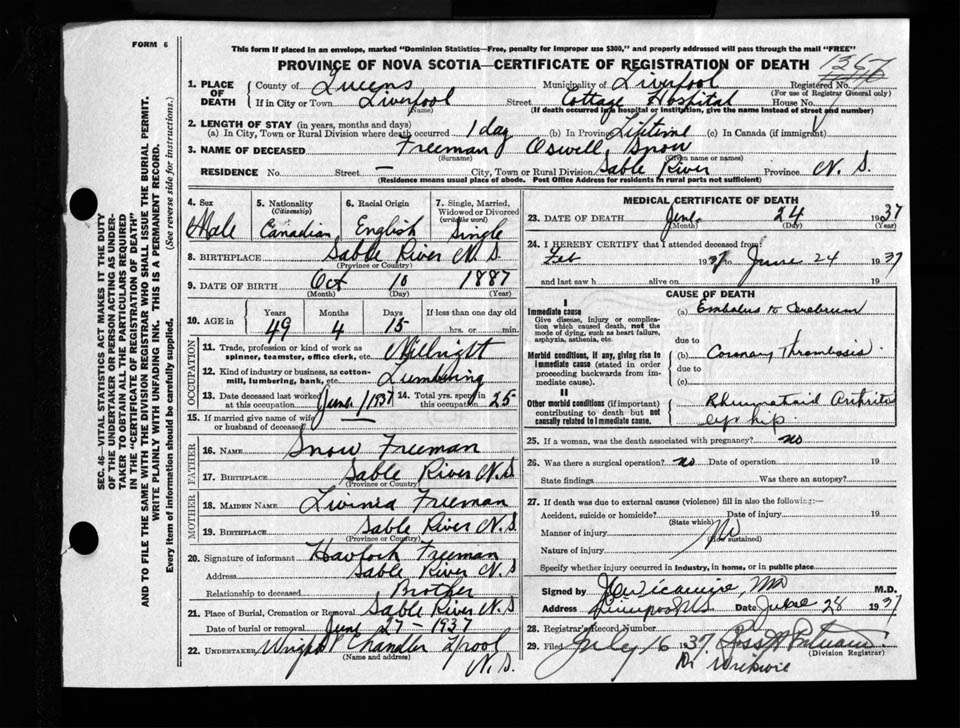 FORM 6
This form if placed in an envelope, marked "Dominion Statistics—Free, penalty for improper use $300," and properly addressed will pass through the mail "FREE"
PROVINCE OF NOVA SCOTIA—CERTIFICATE OF REGISTRATION OF DEATH
1367
1. PLACE OF DEATH
County of Queens Municipality of Liverpool Registered No.
(For use of Registrar General only)
If in City or Town Liverpool Street Cottage Hospital House No.
(Name) (If death occurred in a hospital or institution, give the name instead of street and number)
2. LENGTH OF STAY (in years, months and days)
(a) In City, Town or Rural Division where death occurred 1 day (b) In Province Lifetime (c) In Canada (if immigrant)
3. NAME OF DECEASED Freeman Oswell Snow
(Surname) (Given name or names)
RESIDENCE No. Street — City, Town or Rural Division Sable River Province N. S.
(Residence means usual place of abode. Post Office Address for residents in rural parts not sufficient)
4. Sex Male
5. Nationality (Citizenship) Canadian
6. Racial Origin English
7. Single, Married, Widowed or Divorced (write the word) Single
8. BIRTHPLACE Sable River N. S.
(Province or Country)
9. DATE OF BIRTH Oct 10 1887
(Month) (Day) (Year)
10. AGE in Years 49 Months 4 Days 15 If less than one day old hrs. or min.
OCCUPATION
11. Trade, profession or kind of work as spinner, teamster, office clerk, etc.
12. Kind of industry or business, as cotton-mill, lumbering, bank, etc. Lumbering
13. Date deceased last worked at this occupation June 1/1937 14. Total yrs. spent in this occupation 25
15. If married give name of wife or husband of deceased —
FATHER
16. NAME Snow Freeman
17. BIRTHPLACE Sable River N.S
(Province or Country)
MOTHER
18. MAIDEN NAME Freeman
19. BIRTHPLACE Sable River N. S
(Province or Country)
20. Signature of informant Havlock Freeman
Address Sable River N. S
Relationship to deceased Brother
21. Place of Burial, Cremation or Removal Sable River N. S
Date of burial or removal June 27 — 1937
22. UNDERTAKER Wright Chandler L'pool
(Name and address) N. S.
MEDICAL CERTIFICATE OF DEATH
23. DATE OF DEATH June 24 1937
(Month) (Day) (Year)
24. I HEREBY CERTIFY that I attended deceased from:
Feb 1937 to June 24 1937
and last saw h alive on 19
CAUSE OF DEATH
I
Immediate cause
Give disease, injury, or complication which caused death, not the mode of dying, such as heart failure, asphyxia, asthenia, etc.
(a) Embolus to Cerebrum
due to
Morbid conditions, if any, giving rise to immediate cause (stated in order proceeding backwards from immediate cause).
(b) Coronary Thrombosis
due to
(c)
II
Other morbid conditions (if important) contributing to death but not causally related to immediate cause.
Rheumatoid Arthritis
hip
25. If a woman, was the death associated with pregnancy? no
26. Was there a surgical operation? no Date of operation 19
State findings Was there an autopsy?
27. If death was due to external causes (violence) fill in also the following:—
Accident, suicide or homicide? Date of injury 19
(State which)
Manner of injury No
(How sustained)
Nature of injury
Specify whether injury occurred in industry, in home, or in public place
Signed by M.D.
Address Liverpool N.S Date June 28 1937
28. Registrar's Record Number
29. Filed July 16 1937
(Division Registrar)
SEC. 46—VITAL STATISTICS ACT MAKES IT THE DUTY
OF THE UNDERTAKER OR PERSON ACTING AS UNDER-
TAKER TO OBTAIN ALL THE PARTICULARS REQUIRED
IN THE "CERTIFICATE OF REGISTRATION OF DEATH"
AND TO FILE THE SAME WITH THE DIVISION REGISTRAR WHO SHALL ISSUE THE BURIAL PERMIT.
WRITE PLAINLY WITH UNFADING INK. THIS IS A PERMANENT RECORD.
Every item of information should be carefully supplied. (See reverse side for instructions.)